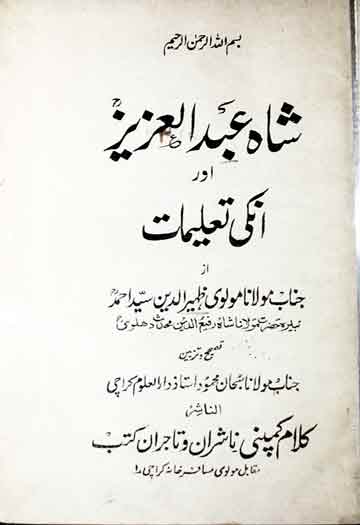 بسم اللہ الرحمٰن الرحیم
شاہ عبد العزیزؒ
اور
انکی تعلیمات
از
جناب مولانا مولوی ظہیر الدین سید احمدؒ
نبیرہ حضرت مولانا شاہ رفیع الدین محدث دھلویؒ
تصحیح و تزئین
جناب مولانا سبحان محمود استاذ دارالعلوم کراچی
الناشر
کلام کمپنی ناشران و تاجران کتب
مقابل مولوی مسافر خانہ کراچی ۱